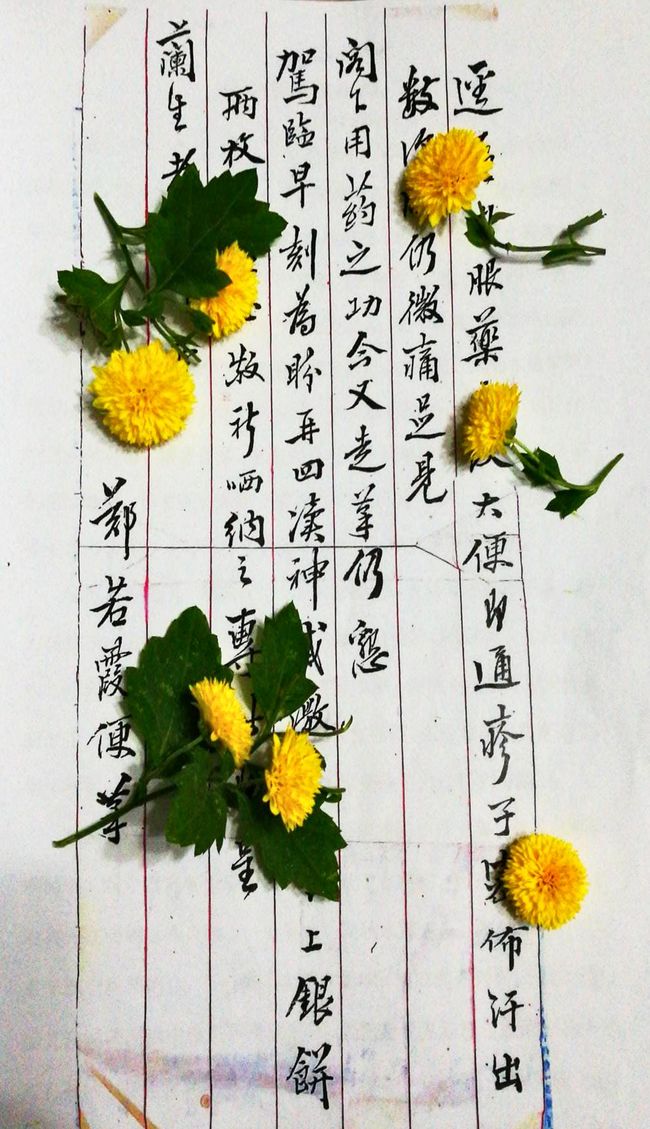 逕服藥大便即通疹子佈汗出
数仍微痛足見
阁下用药之功今又走筆仍懇
駕臨早刻為盼再四瀆神感激上銀餅
兩枚敬祈哂納之專呈
蘭生
鄭若霞便筆